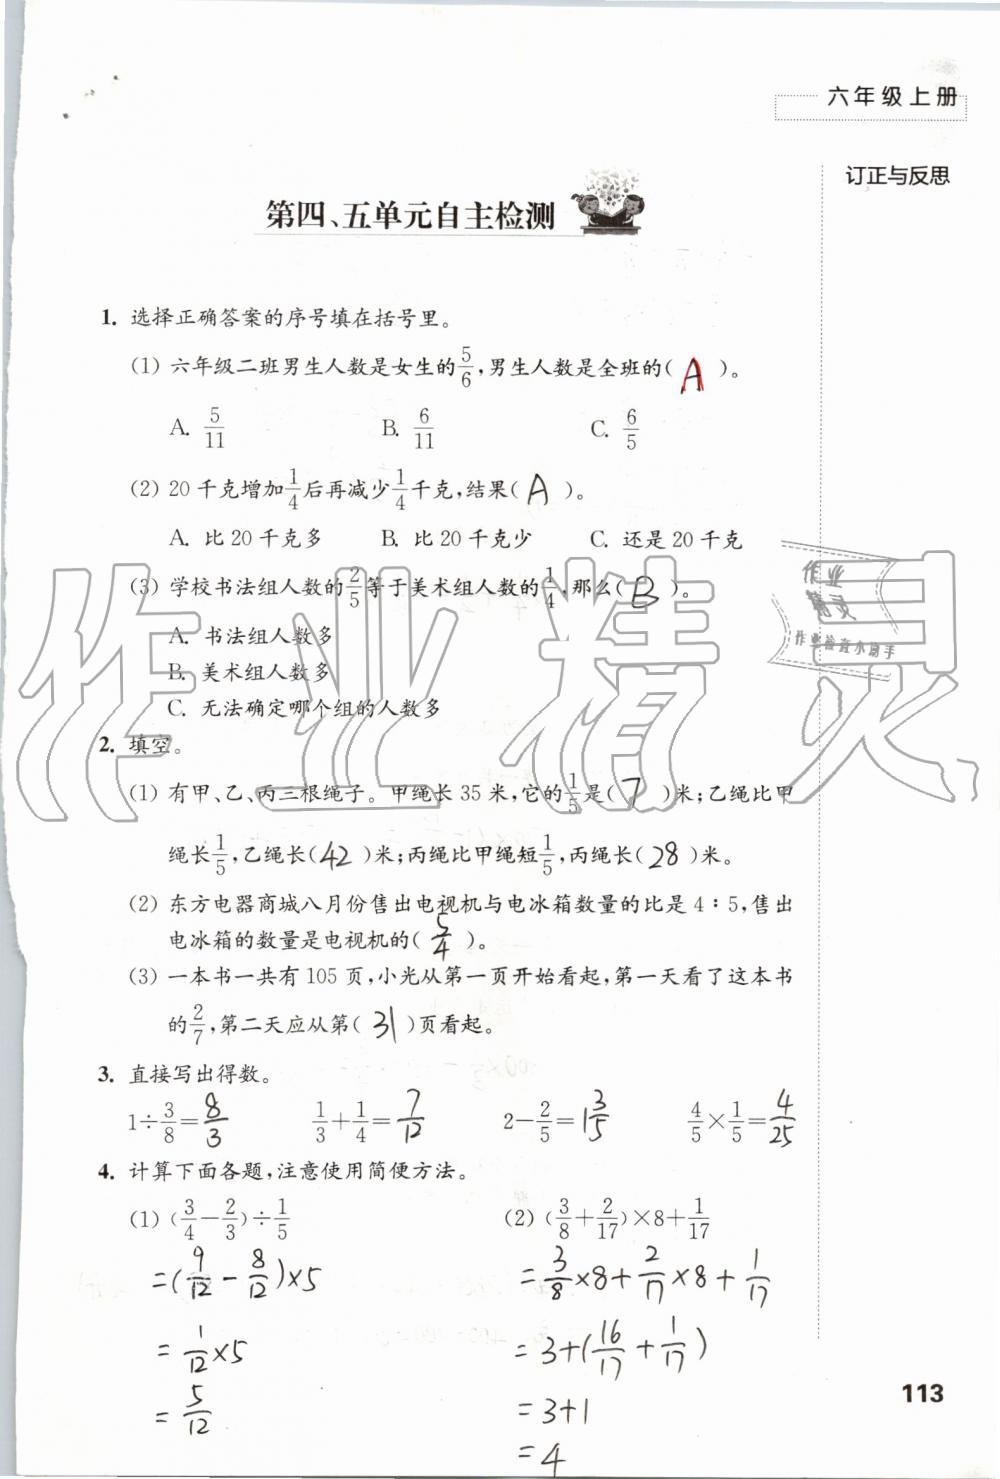 六年级上册
订正与反思
第四、五单元自主检测
1. 选择正确答案的序号填在括号里。
(1) 六年级二班男生人数是女生的5/6,男生人数是全班的( A )。
A. 5/11 B. 6/11 C. 6/5
(2) 20千克增加1/4后再减少1/4千克,结果( A )。
A. 比20千克多 B. 比20千克少 C. 还是20千克
(3) 学校书法组人数的2/5等于美术组人数的1/4,那么( B )。
A. 书法组人数多
B. 美术组人数多
C. 无法确定哪个组的人数多
2. 填空。
(1) 有甲、乙、丙三根绳子。甲绳长35米,它的1/5是( 7 )米;乙绳比甲
绳长1/5,乙绳长( 42 )米;丙绳比甲绳短1/5,丙绳长( 28 )米。
(2) 东方电器商城八月份售出电视机与电冰箱数量的比是4∶5,售出
电冰箱的数量是电视机的( 5/4 )。
(3) 一本书一共有105页,小光从第一页开始看起,第一天看了这本书
的2/7,第二天应从第( 31 )页看起。
3. 直接写出得数。
1÷3/8=8/3 1/3+1/4=7/12 2-2/5=1 3/5 4/5×1/5=4/25
4. 计算下面各题,注意使用简便方法。
(1) (3/4-2/3)÷1/5 (2) (3/8+2/17)×8+1/17
=(9/12-8/12)×5 =3/8×8+2/17×8+1/17
=1/12×5 =3+(16/17+1/17)
=5/12 =3+1
=4
113
作业精灵
作业
精灵
作业检查小助手